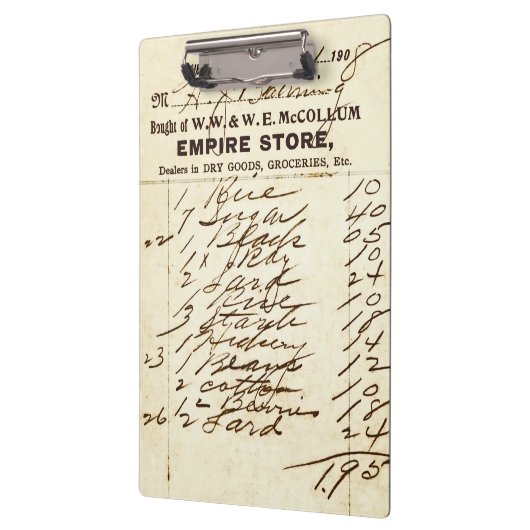 1908
M
Bought of W.W. & W.E. McCOLLUM
EMPIRE STORE,
Dealers in DRY GOODS, GROCERIES, Etc.
1 Rice 10
7 Sugar 40
22 1 Black 05
1 x Ray 10
2 Lard 24
1 Rice 10
3 Starch 18
1 Hickory 14
23 1 Beans 12
2 cotton 10
1 2 Berries 18
26 2 Lard 24
1.95